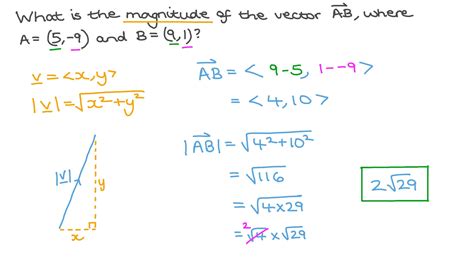 What is the magnitude of the vector AB⃗, where
A = (5,-9) and B = (9,1)?
v = <x,y>
|v| = √x²+y²
|v|
y
x
AB⃗ = < 9-5, 1--9 >
= < 4, 10 >
|AB⃗| = √4²+10²
= √116
= √4×29
= ²√4 × √29
2√29